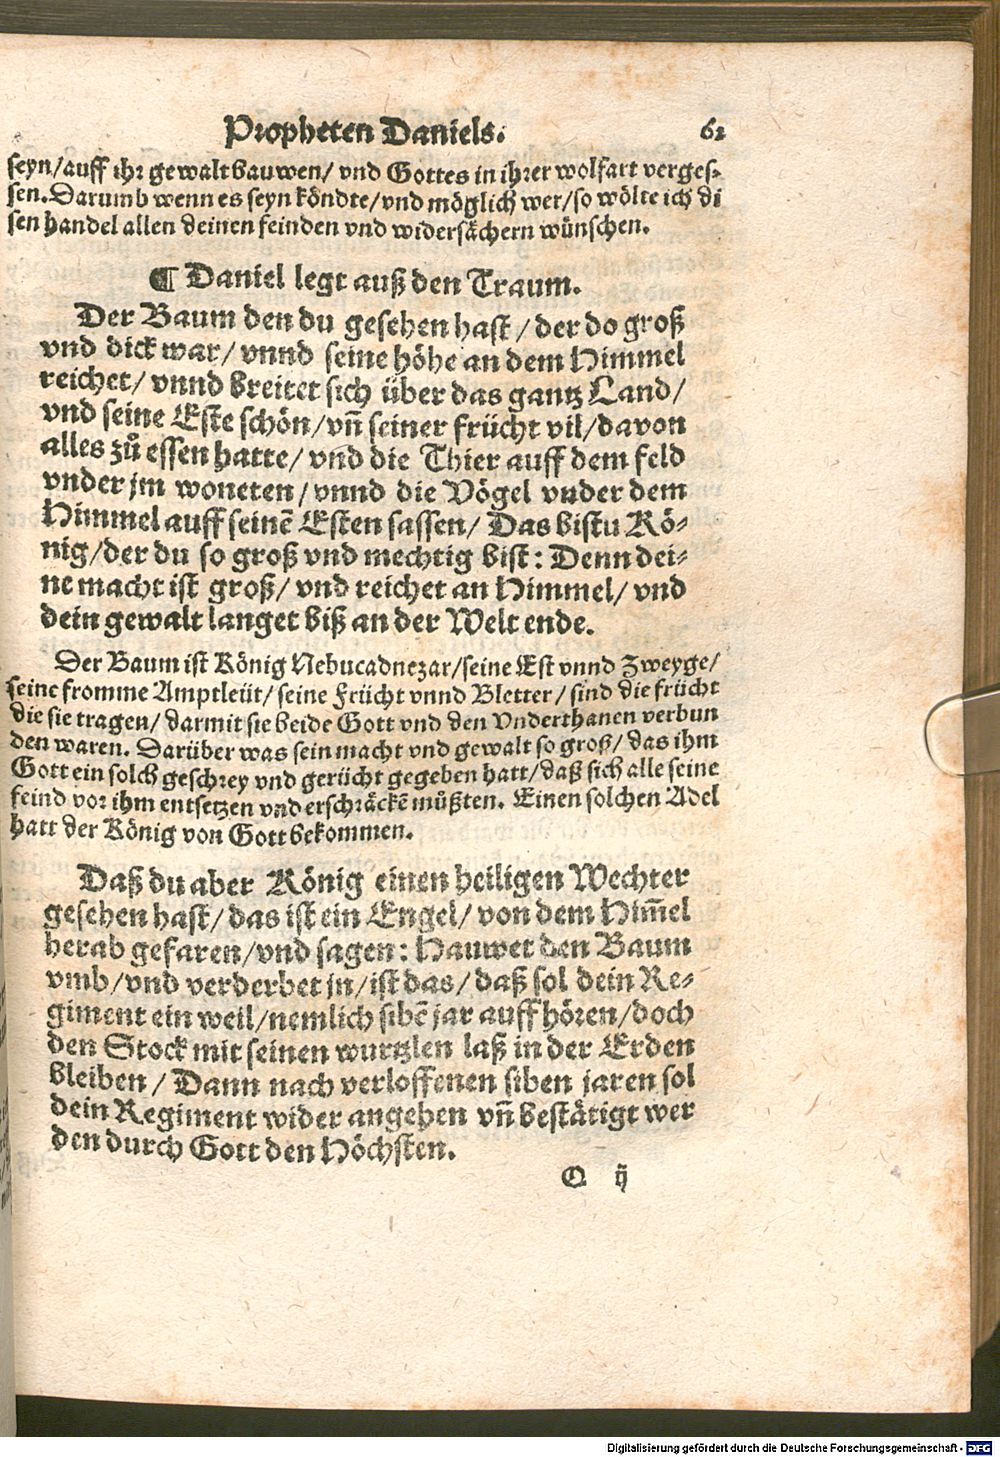 Propheten Daniels. 62
seyn/auff ihr gewalt bauwen/ vnd Gottes in ihrer wolfart verges-
sen. Darumb wenn es seyn köndte/vnd möglich wer/so wölte ich di
sen handel allen deinen feinden vnd widersächern wünschen.
¶ Daniel legt auß den Traum.
Der Baum den du gesehen hast / der do groß
vnd dick war/ vnnd seine höhe an dem Himmel
reichet/ vnnd breitet sich über das gantz Land/
vnd seine Este schön/vñ seiner frücht vil/davon
alles zů essen hatte/ vnd die Thier auff dem feld
vnder jm woneten /vnnd die Vögel vnder dem
Himmel auff seinẽ Esten sassen/ Das bistu Kö-
nig/der du so groß vnd mechtig bist: Denn dei-
ne macht ist groß/ vnd reichet an Himmel/ vnd
dein gewalt langet biß an der Welt ende.
Der Baum ist König Nebucadnezar/seine Est vnnd Zweyge/
seine fromme Amptleüt/ seine Frücht vnnd Bletter / sind die frücht
die sie tragen/ darmit sie beide Gott vnd den Vnderthanen verbun
den waren. Darüber was sein macht vnd gewalt so groß/ das ihm
Gott ein solch geschrey vnd gerücht gegeben hatt/daß sich alle seine
feind vor ihm entsetzen vnd erschräckẽ müßten. Einen solchen Adel
hatt der König von Gott bekommen.
Daß du aber König einen heiligen Wechter
gesehen hast/ das ist ein Engel/ von dem Him̃el
herab gefaren/vnd sagen: Hauwet den Baum
vmb /vnd verderbet jn/ist das/ daß sol dein Re-
giment ein weil/nemlich sibẽ jar auffhören/doch
den Stock mit seinen wurtzlen laß in der Erden
bleiben / Dann nach verloffenen siben jaren sol
dein Regiment wider angehen vñ bestätigt wer
den durch Gott den Höchsten.
Q ij
Digitalisierung gefördert durch die Deutsche Forschungsgemeinschaft - DFG